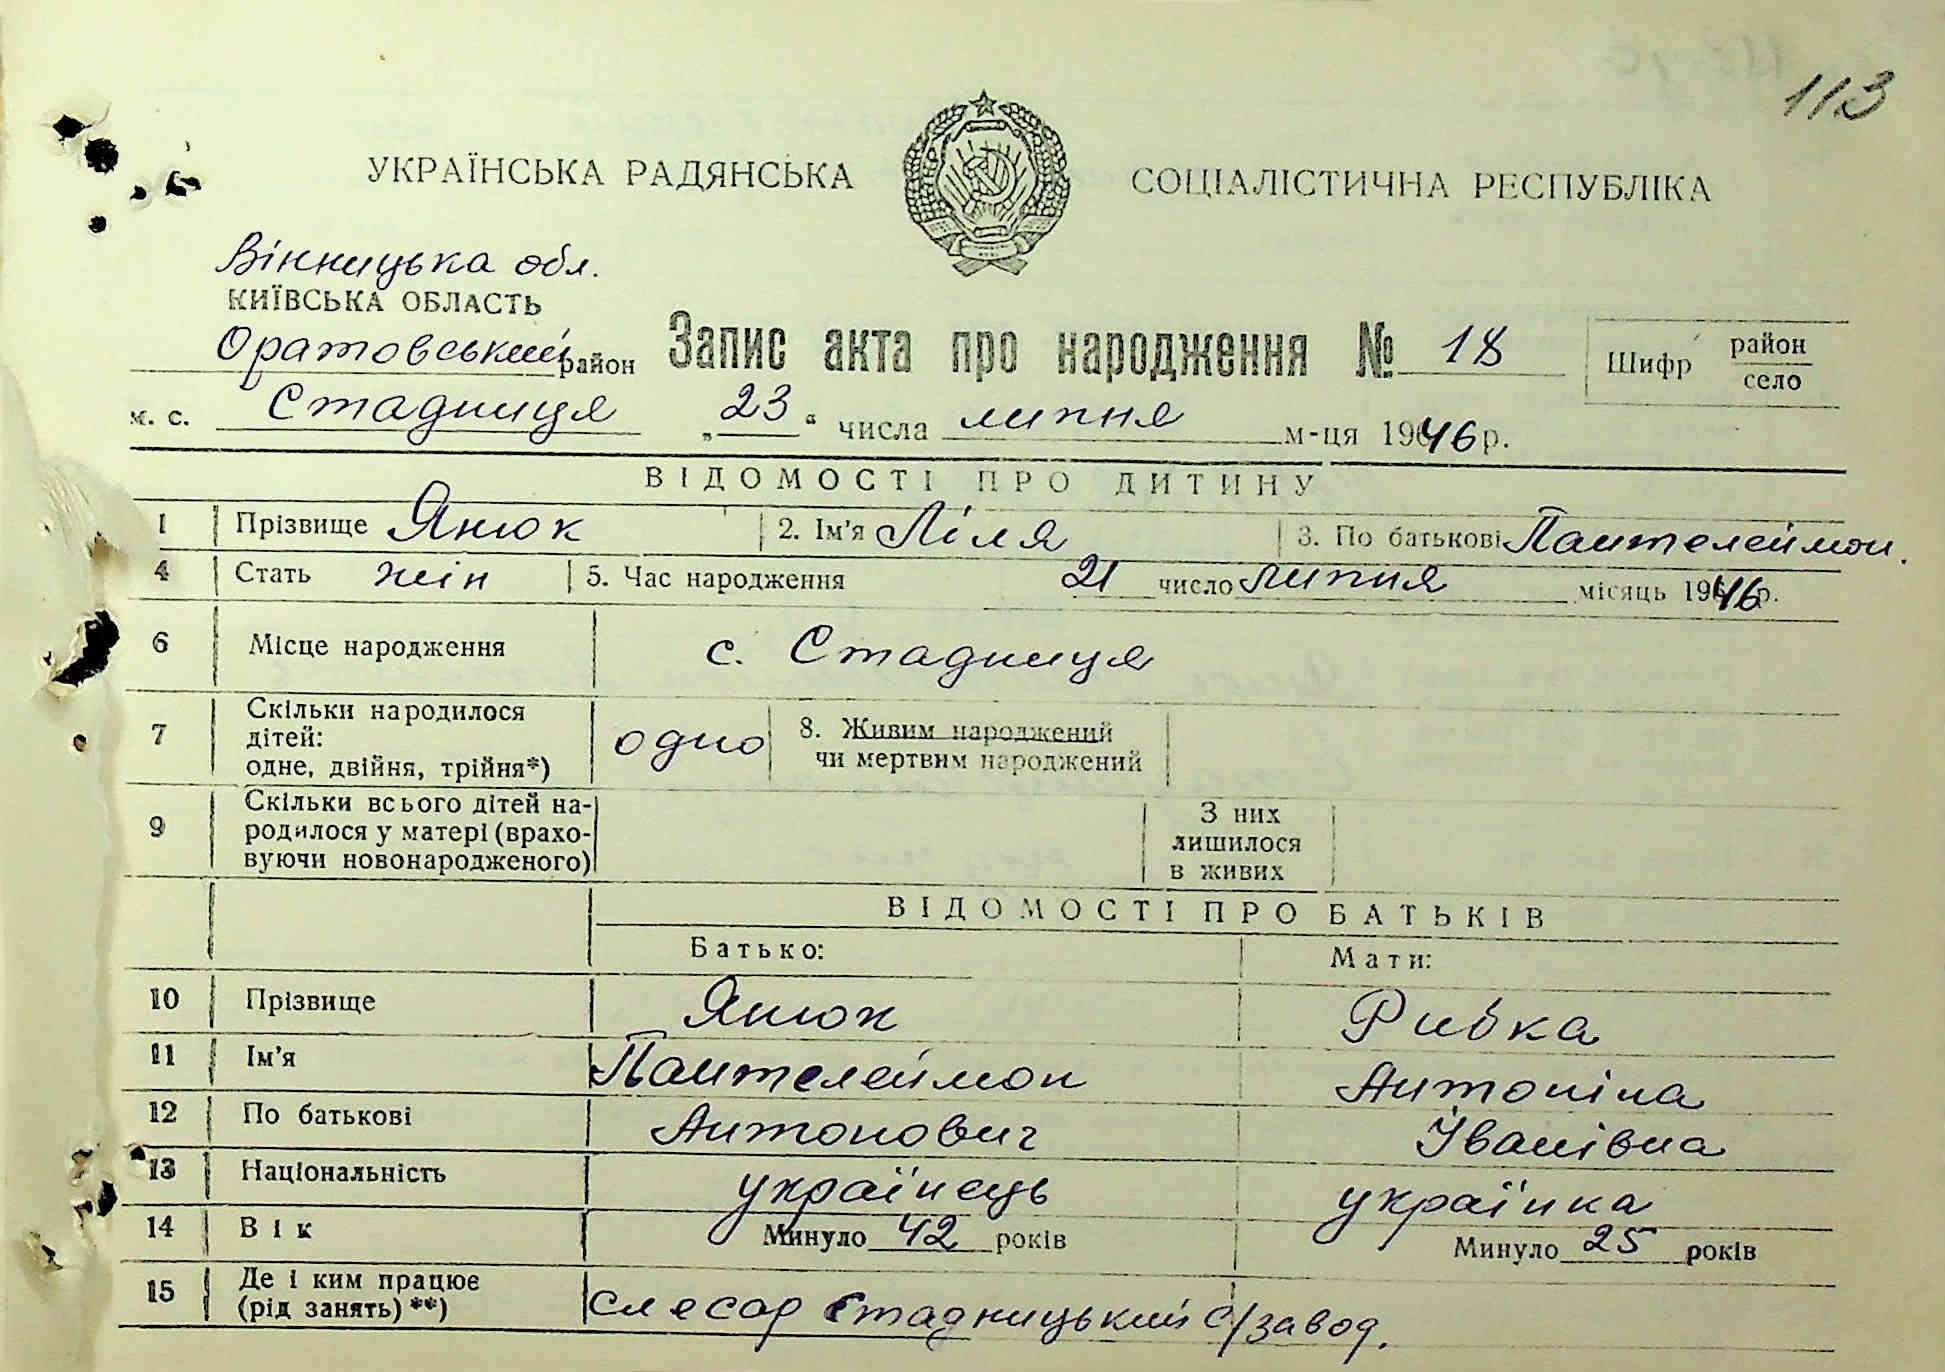 113
УКРАЇНСЬКА РАДЯНСЬКА СОЦІАЛІСТИЧНА РЕСПУБЛІКА
Вінницька обл.
КИЇВСЬКА ОБЛАСТЬ
Оратовський район Запис акта про народження № 18 Шифр район село
м. с. Стадниця „23“ числа липня м-ця 1946 р.
ВІДОМОСТІ ПРО ДИТИНУ
1 Прізвище Янюк 2. Ім'я Ліля 3. По батькові Пантелеймон.
4 Стать жін 5. Час народження 21 число липня місяць 1946 р.
6 Місце народження с. Стадниця
7 Скільки народилося дітей: одне, двійня, трійня*) одно 8. Живим народжений чи мертвим народжений
9 Скільки всього дітей народилося у матері (враховуючи новонародженого) З них лишилося в живих
ВІДОМОСТІ ПРО БАТЬКІВ
Батько: Мати:
10 Прізвище Янюк Рибка
11 Ім'я Пантелеймон Антоніна
12 По батькові Антонович Іванівна
13 Національність українець українка
14 Вік Минуло 42 років Минуло 25 років
15 Де і ким працює (рід занять) **) слесар Стадницький с/завод.